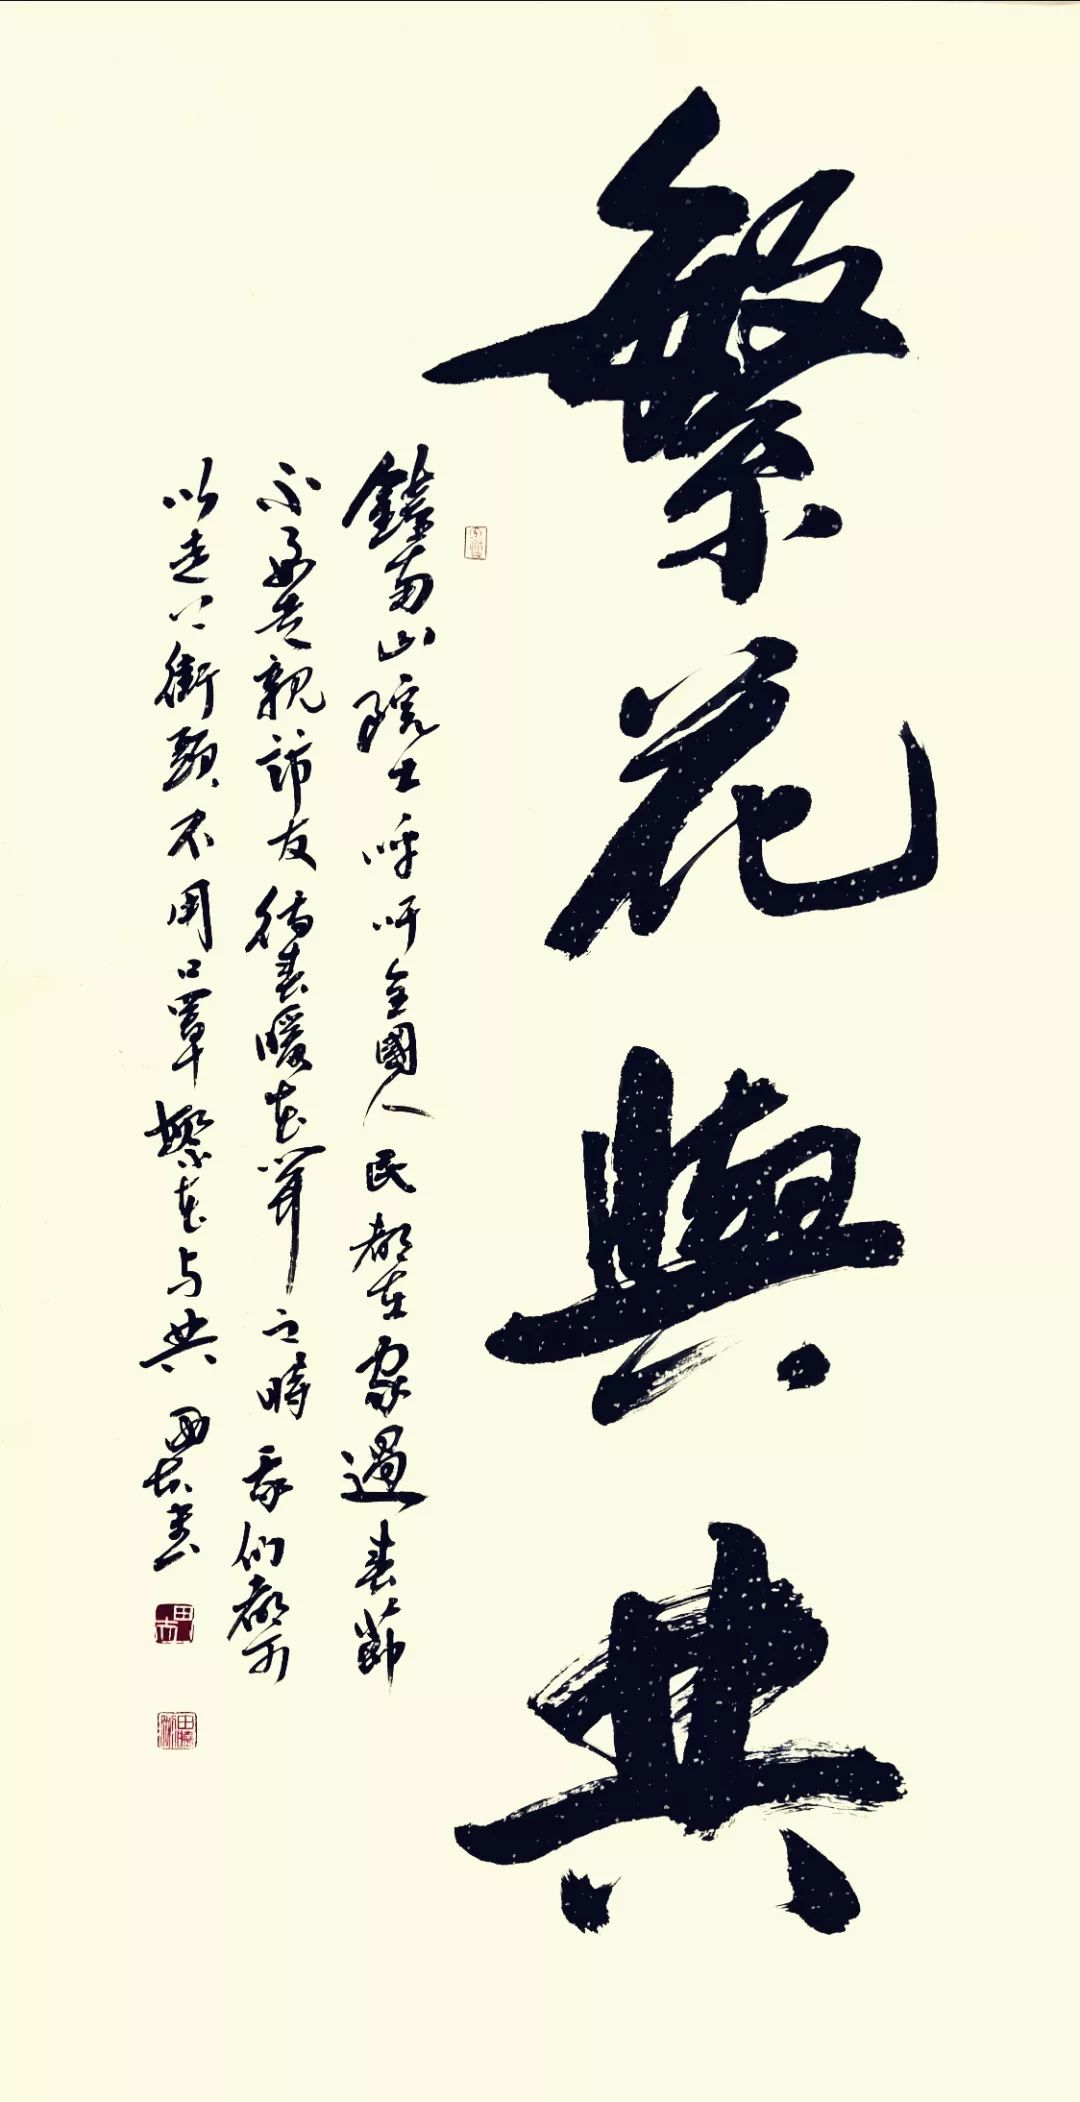 繁花與共
鐘南山院士呼吁全國人民都在家過春節
不要走親訪友待春暖花開之時我们都可
以走上街頭不用口罩繁花与共